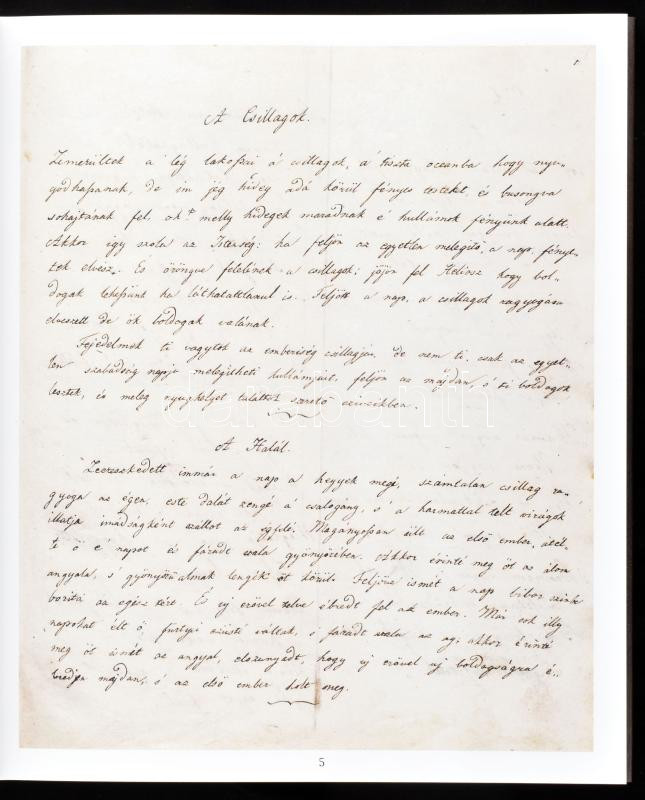 A Csillagok.
Lemerűltek a' lég lakossai á csillagok, á tiszta oceanba hogy nyu-
godhassanak, de im jég hideg adá körűl fényes testeket, és busongva
sohajtának fel, oh! melly hidegek maradnak é hullámok fényünk alatt.
Akkor igy szola az Istenség: ha feljön az egyetlen melegitő, a nap, fény-
tek elvesz. És öröngve felelének a csillagok; jöjön fel Heliosz hogy bol-
dogak lehessünk ha láthatatlanul is. Feljött a nap, a csillagok ragyogása
elveszett de ők boldogak valának.
Fejedelmek ti vagytok az emberiség csillagjai, de nem ti, csak az egyet-
len szabadság napja melegitheti hullámjait, feljön az majdan, s' ti boldogok
lesztek, és meleg nyughelyet találtok szerető sziveikben.
A Halál.
Leereszkedett immár a nap a hegyek megé, számtalan csillag ra-
gyoga az égen, este dalát zengé a csalogány, s' a harmattal telt virágok
illatja imádságként szállot az egfelé. Magányossan ült az első ember, átél-
te ő é napot és fáradt vala gyönyöreiben. Akkor érinté meg őt az álom
angyala, s' gyönyörű álmak lengék őt körűl. Feljöve ismét a nap bibor szinbe
boritá az egész tért. És uj erővel telve ébredt fel az ember. Már sok illy
napokat élt ő, fürtyei ezüsté váltak, s fáradt vala az ag, akkor érinté
meg őt ismét az angyal, elszunyadt, hogy uj erővel uj boldogságra é-
bredjen majdan, s' az első ember holt meg.
darabanth
5